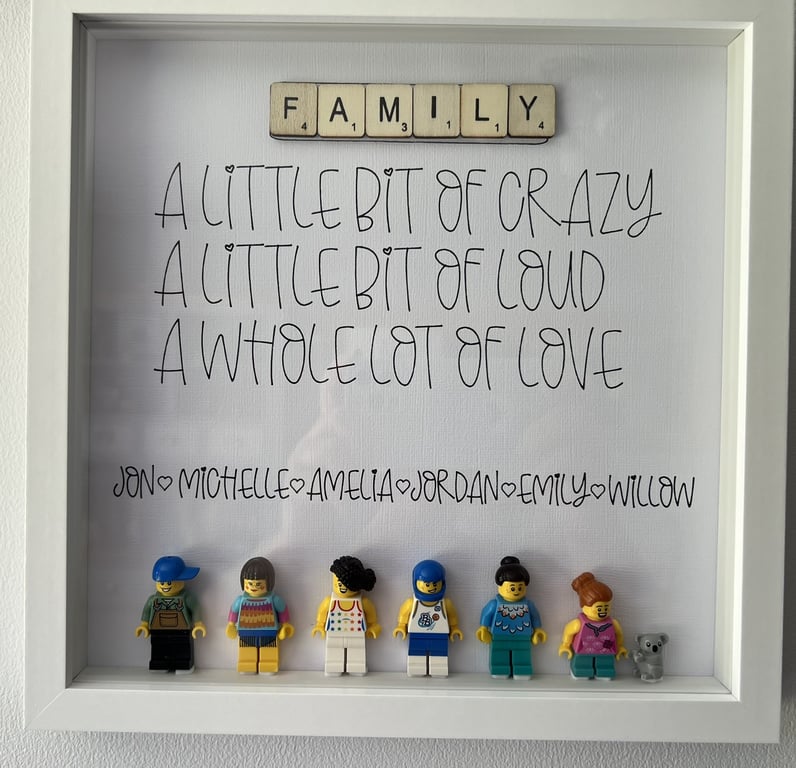 F4 A1 M3 I1 L1 Y4
A LiTTLE BiT OF CRAZY
A LiTTLE BiT OF LOUD
A WHOLE LOT OF LOVE
JON♡MiCHELLE♡AMELiA♡JORDAN♡EMiLY♡WiLLOW